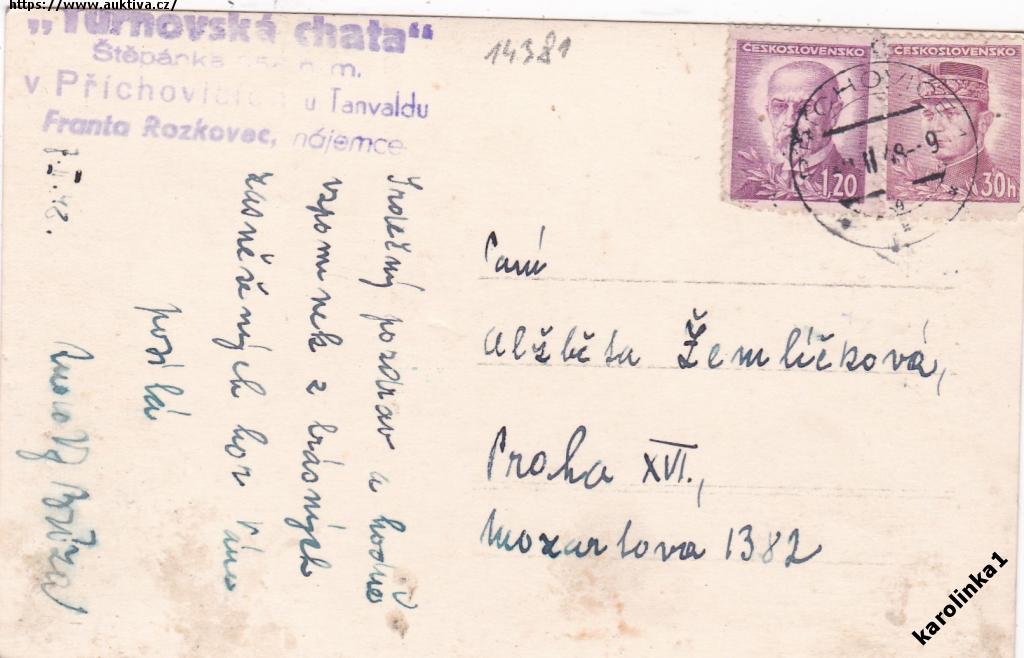 https://www.auktiva.cz/
„Turnovská chata“
Štěpánka m.
v Příchovicích u Tanvaldu
Franta Rozkovec, nájemce
14381
ČESKOSLOVENSKO
1,20
ČESKOSLOVENSKO
30h
II 48-9
Srdečný pozdrav a hodně
vzpomínek z krásných
zasněžených hor Vám
posílá
Paní
Alžběta Žemlíčková,
Praha XVI.,
Mozartova 1382
karolinka1